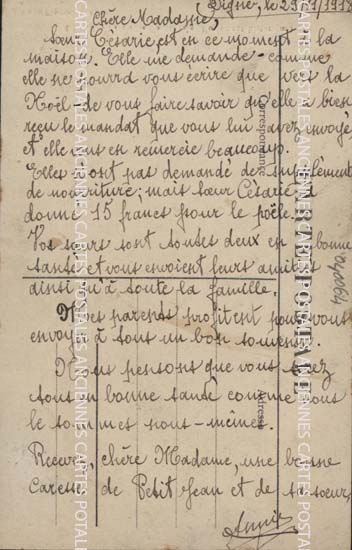 Digne, le
Chère Madame,
Sœur Césarie est en ce moment à la
maison. Elle me demande comme
elle ne pourra vous écrire que vers la
Noël de vous faire savoir qu'elle a bien
reçu le mandat que vous lui avez envoyé
et elle vous en remercie beaucoup.
Elles n'ont pas demandé de supplément
de nourriture; mais sœur Césarie a
donné 15 francs pour le poêle.
Vos sœurs sont toutes deux en bonne
santé et vous envoient leurs amitiés
ainsi qu'à toute la famille.
Mes parents profitent pour vous
envoyer à tous un bon souvenir.
Nous pensons que vous êtes
tous en bonne santé comme nous
le sommes nous-mêmes.
Recevez, chère Madame, une bonne
caresse de Petit Jean et de sa sœur,
Annie
Correspondance
CARTE POSTALE
Adresse
CARTES POSTALES ANCIENNES